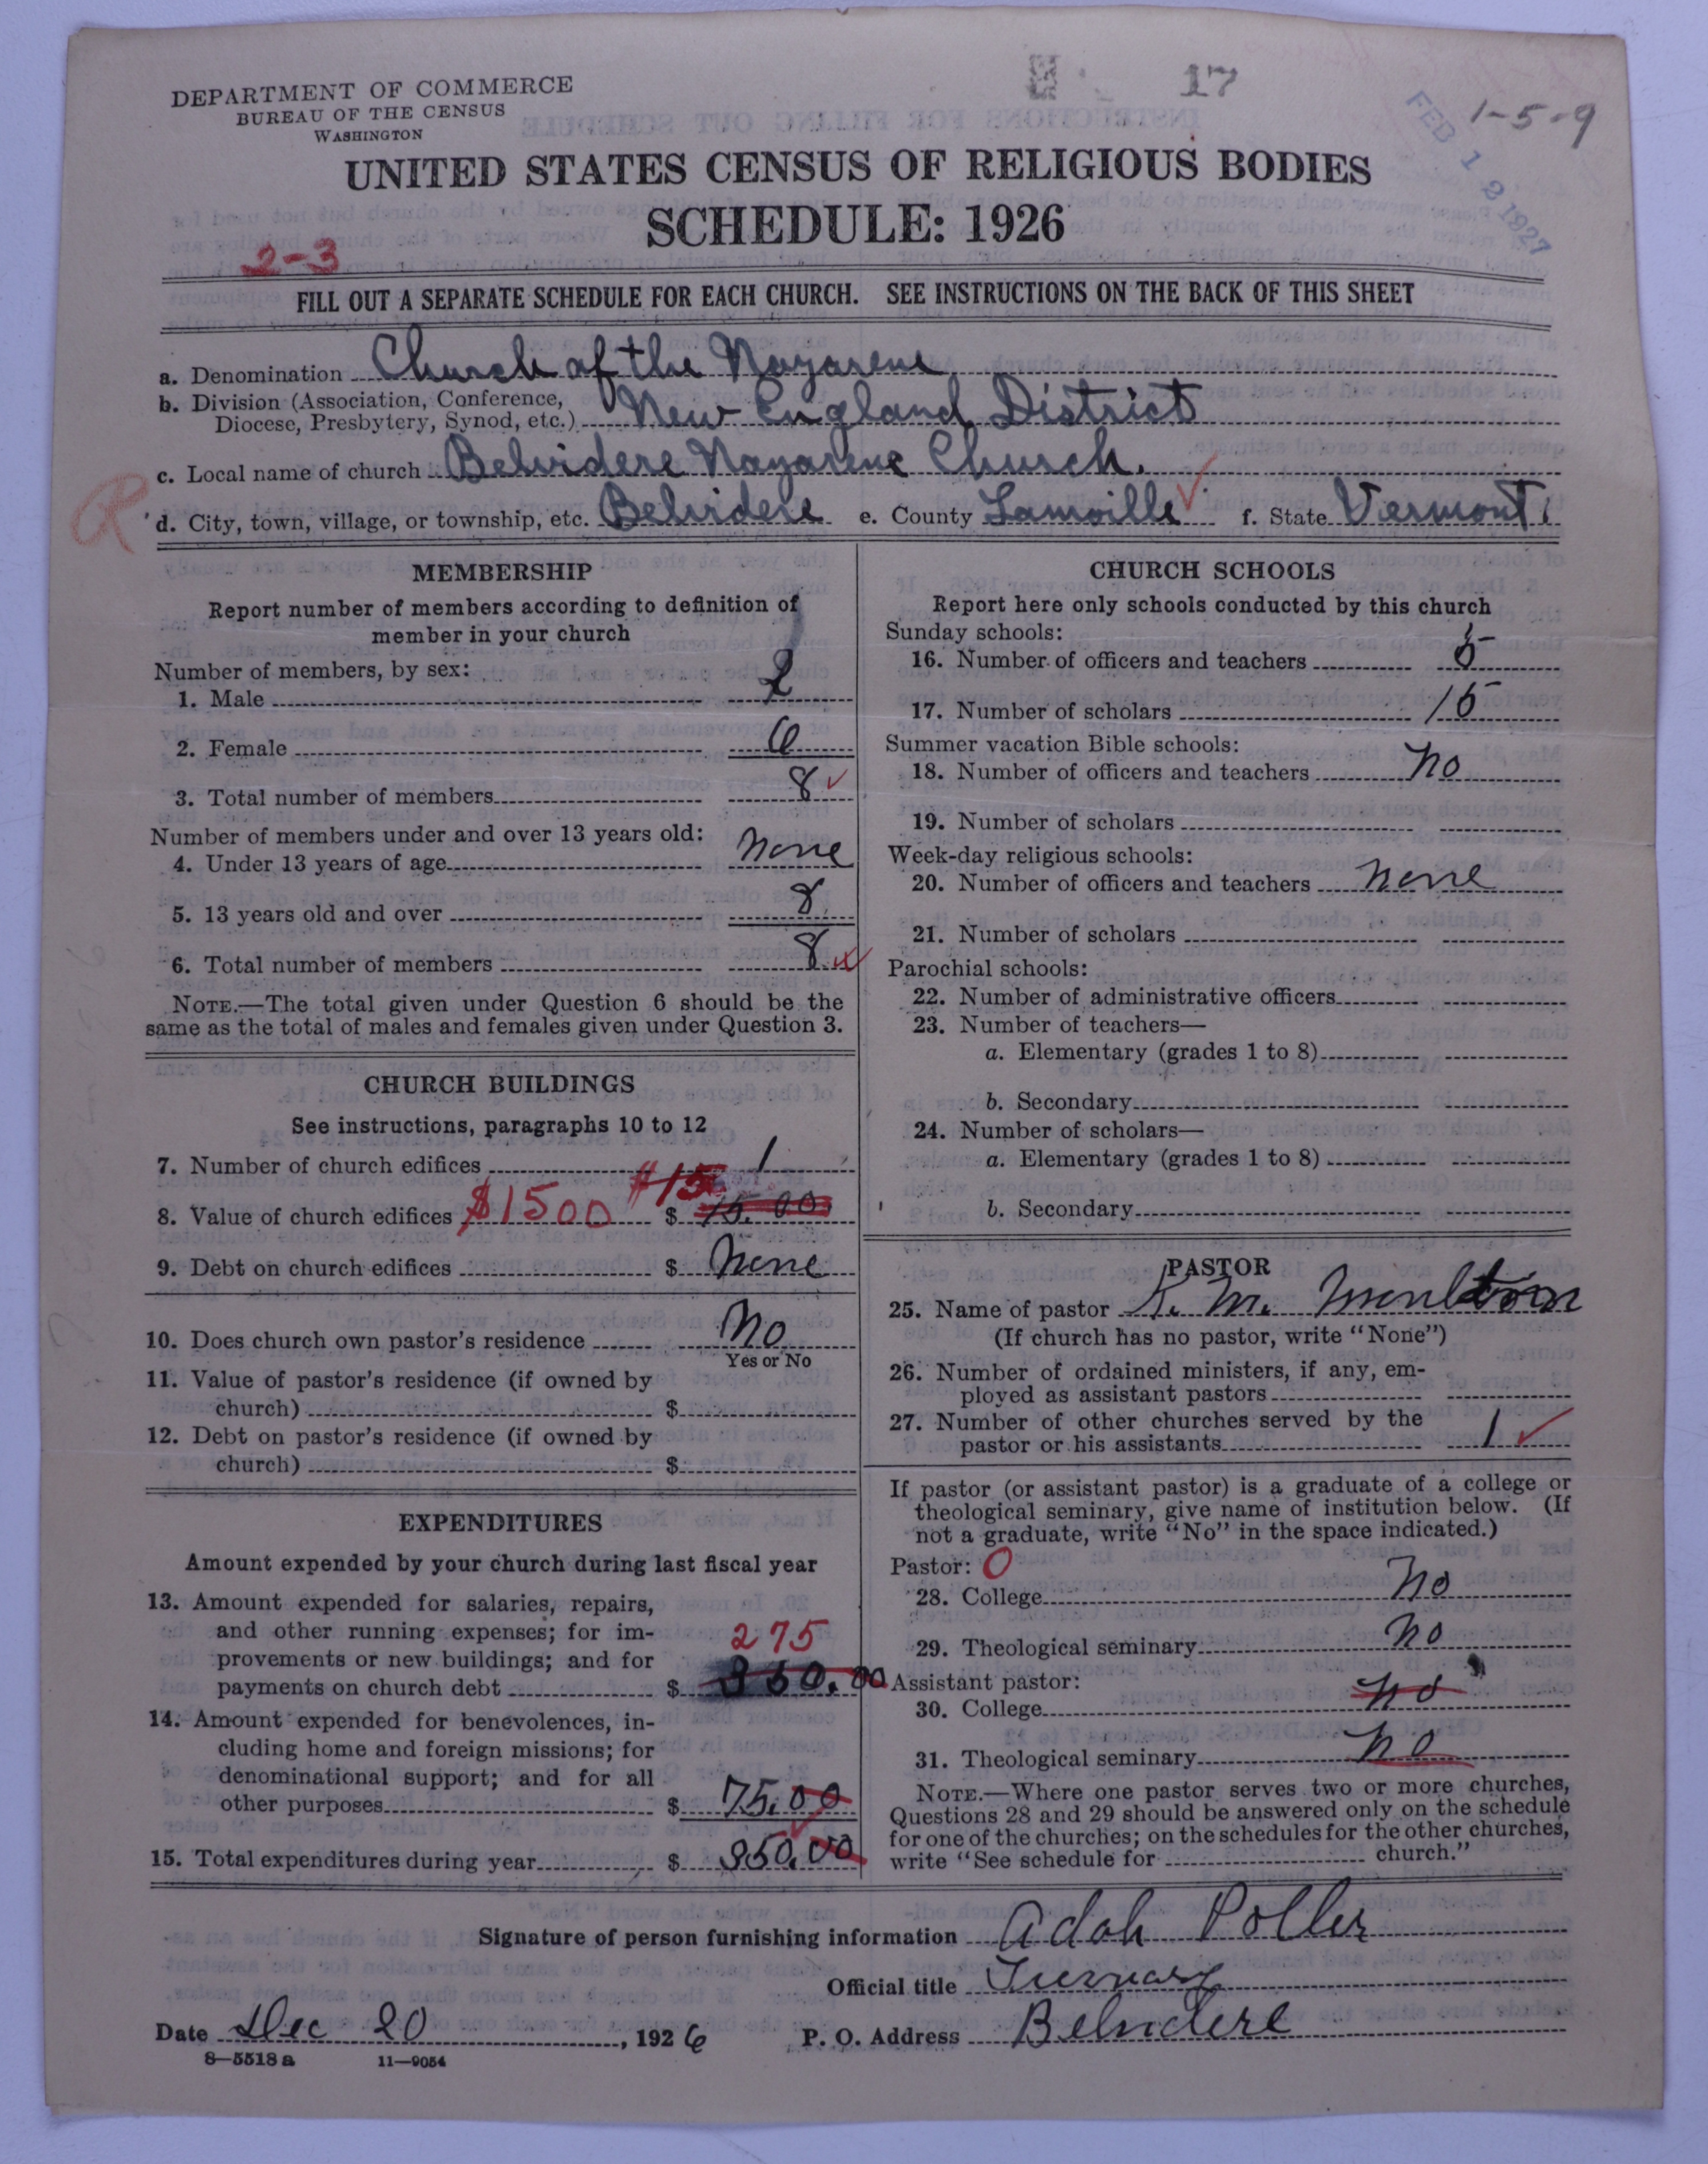 17
1-5-9
FEB 12 1927
DEPARTMENT OF COMMERCE
BUREAU OF THE CENSUS
WASHINGTON
UNITED STATES CENSUS OF RELIGIOUS BODIES
SCHEDULE: 1926
2-3
FILL OUT A SEPARATE SCHEDULE FOR EACH CHURCH. SEE INSTRUCTIONS ON THE BACK OF THIS SHEET
a. Denomination Church of the Nazarene
b. Division (Association, Conference,
Diocese, Presbytery, Synod, etc.) New England District
c. Local name of church Belvidere Nazarene Church.
R
d. City, town, village, or township, etc. Belvidere e. County Lamoille f. State Vermont
MEMBERSHIP
Report number of members according to definition of
member in your church
Number of members, by sex:
1. Male 2
2. Female 6
3. Total number of members 8
Number of members under and over 13 years old:
4. Under 13 years of age None
5. 13 years old and over 8
6. Total number of members 8
NOTE.—The total given under Question 6 should be the
same as the total of males and females given under Question 3.
CHURCH BUILDINGS
See instructions, paragraphs 10 to 12
7. Number of church edifices 1
$15
8. Value of church edifices $1500 $ 15.00
9. Debt on church edifices $ None
10. Does church own pastor's residence No
Yes or No
11. Value of pastor's residence (if owned by
church) $
12. Debt on pastor's residence (if owned by
church) $
EXPENDITURES
Amount expended by your church during last fiscal year
13. Amount expended for salaries, repairs,
and other running expenses; for im-
provements or new buildings; and for
payments on church debt $ 275
350.00
14. Amount expended for benevolences, in-
cluding home and foreign missions; for
denominational support; and for all
other purposes $ 75.00
15. Total expenditures during year $ 350.00
CHURCH SCHOOLS
Report here only schools conducted by this church
Sunday schools:
16. Number of officers and teachers 5
17. Number of scholars 15
Summer vacation Bible schools:
18. Number of officers and teachers No
19. Number of scholars
Week-day religious schools:
20. Number of officers and teachers None
21. Number of scholars
Parochial schools:
22. Number of administrative officers
23. Number of teachers—
a. Elementary (grades 1 to 8)
b. Secondary
24. Number of scholars—
a. Elementary (grades 1 to 8)
b. Secondary
PASTOR
25. Name of pastor K. M. Moulton
(If church has no pastor, write "None")
26. Number of ordained ministers, if any, em-
ployed as assistant pastors
27. Number of other churches served by the
pastor or his assistants 1
If pastor (or assistant pastor) is a graduate of a college or
theological seminary, give name of institution below. (If
not a graduate, write "No" in the space indicated.)
Pastor: 0
28. College No
29. Theological seminary No
Assistant pastor:
30. College No
31. Theological seminary No
NOTE.—Where one pastor serves two or more churches,
Questions 28 and 29 should be answered only on the schedule
for one of the churches; on the schedules for the other churches,
write "See schedule for church."
Signature of person furnishing information Adah Potter
Official title
Date Dec 20, 1926 P. O. Address Belvidere
8—5518 a 11—9054